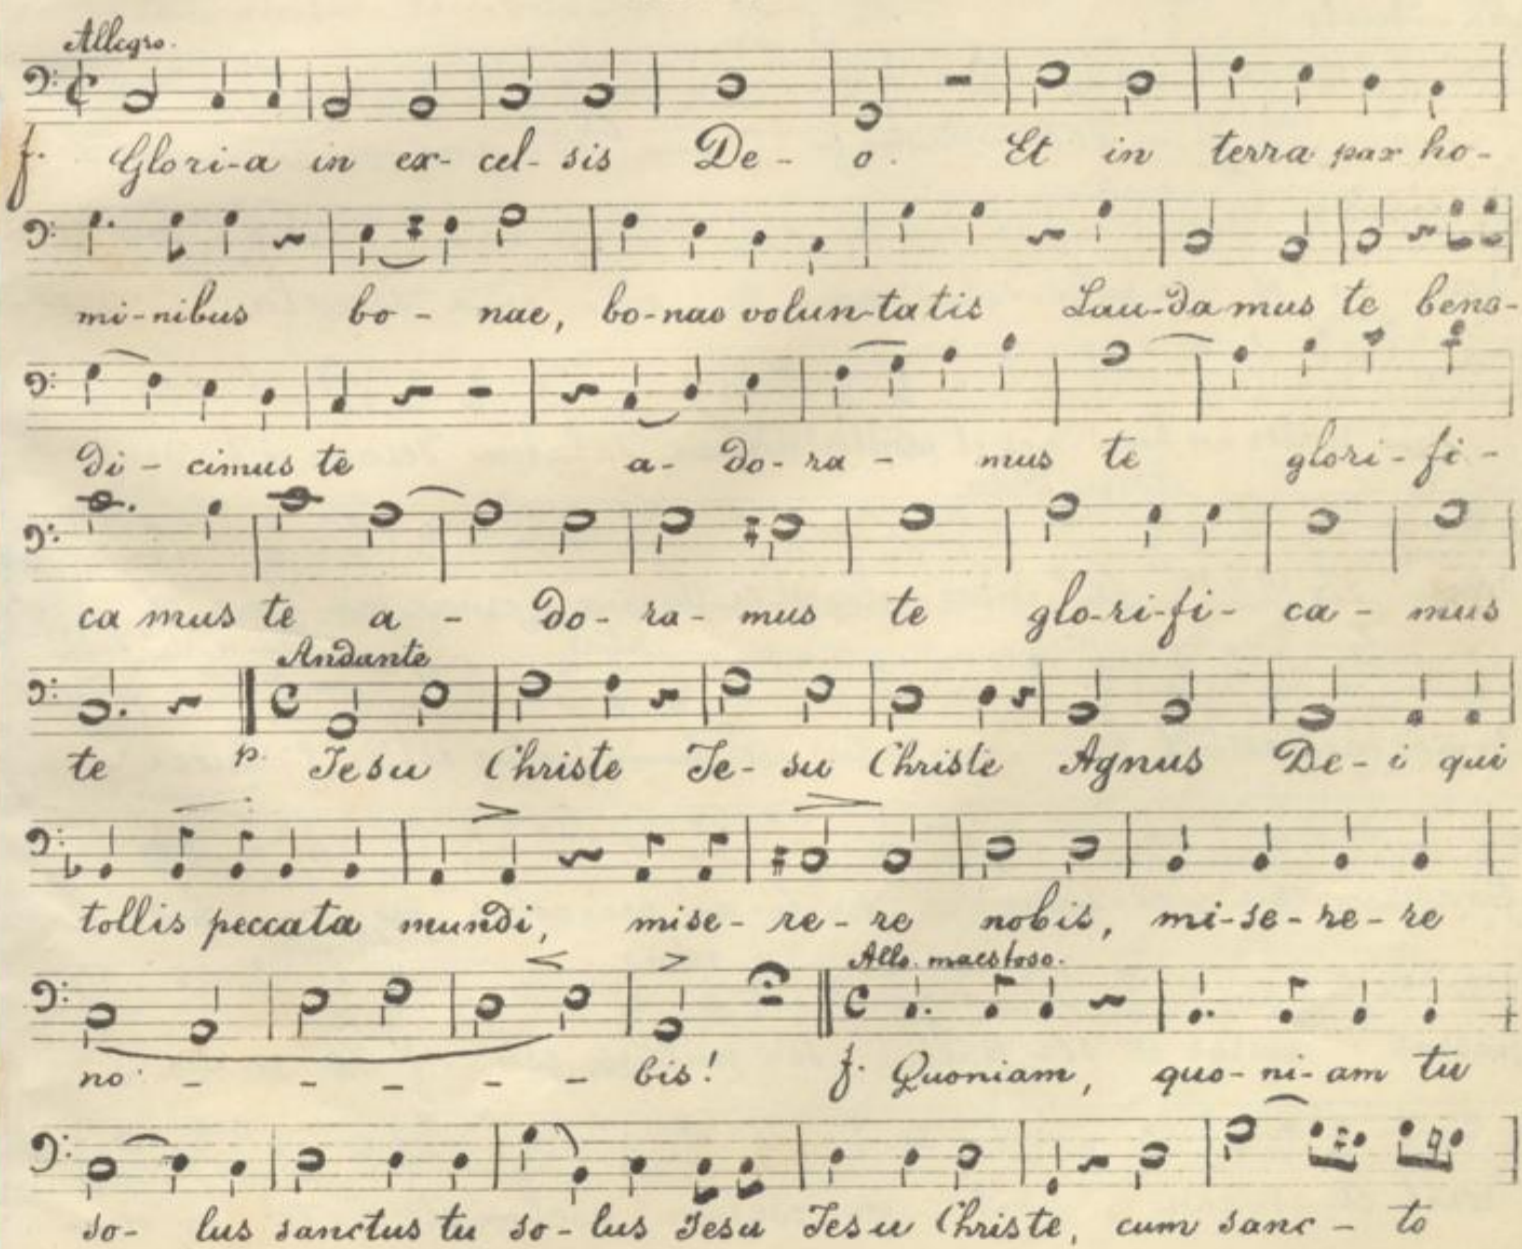 Allegro.
f. Glori-a in ex- cel- sis De - o. Et in terra pax ho-
mi-nibus bo - nae, bo-nae volun-tatis Lau-damus te bene-
di - cimus te a- do-ra - mus te glori-fi-
ca mus te a - do-ra-mus te glo-ri-fi- ca - mus
Andante
te p. Jesu Christe Je- su Christe Agnus De - i qui
tollis peccata mundi, mise - re - re nobis, mi-se-re-re
Allo. maestoso.
no - - - - - bis! f. Quoniam, quo-ni-am tu
so- lus sanctus tu so-lus Jesu Jesu Christe, cum sanc - to